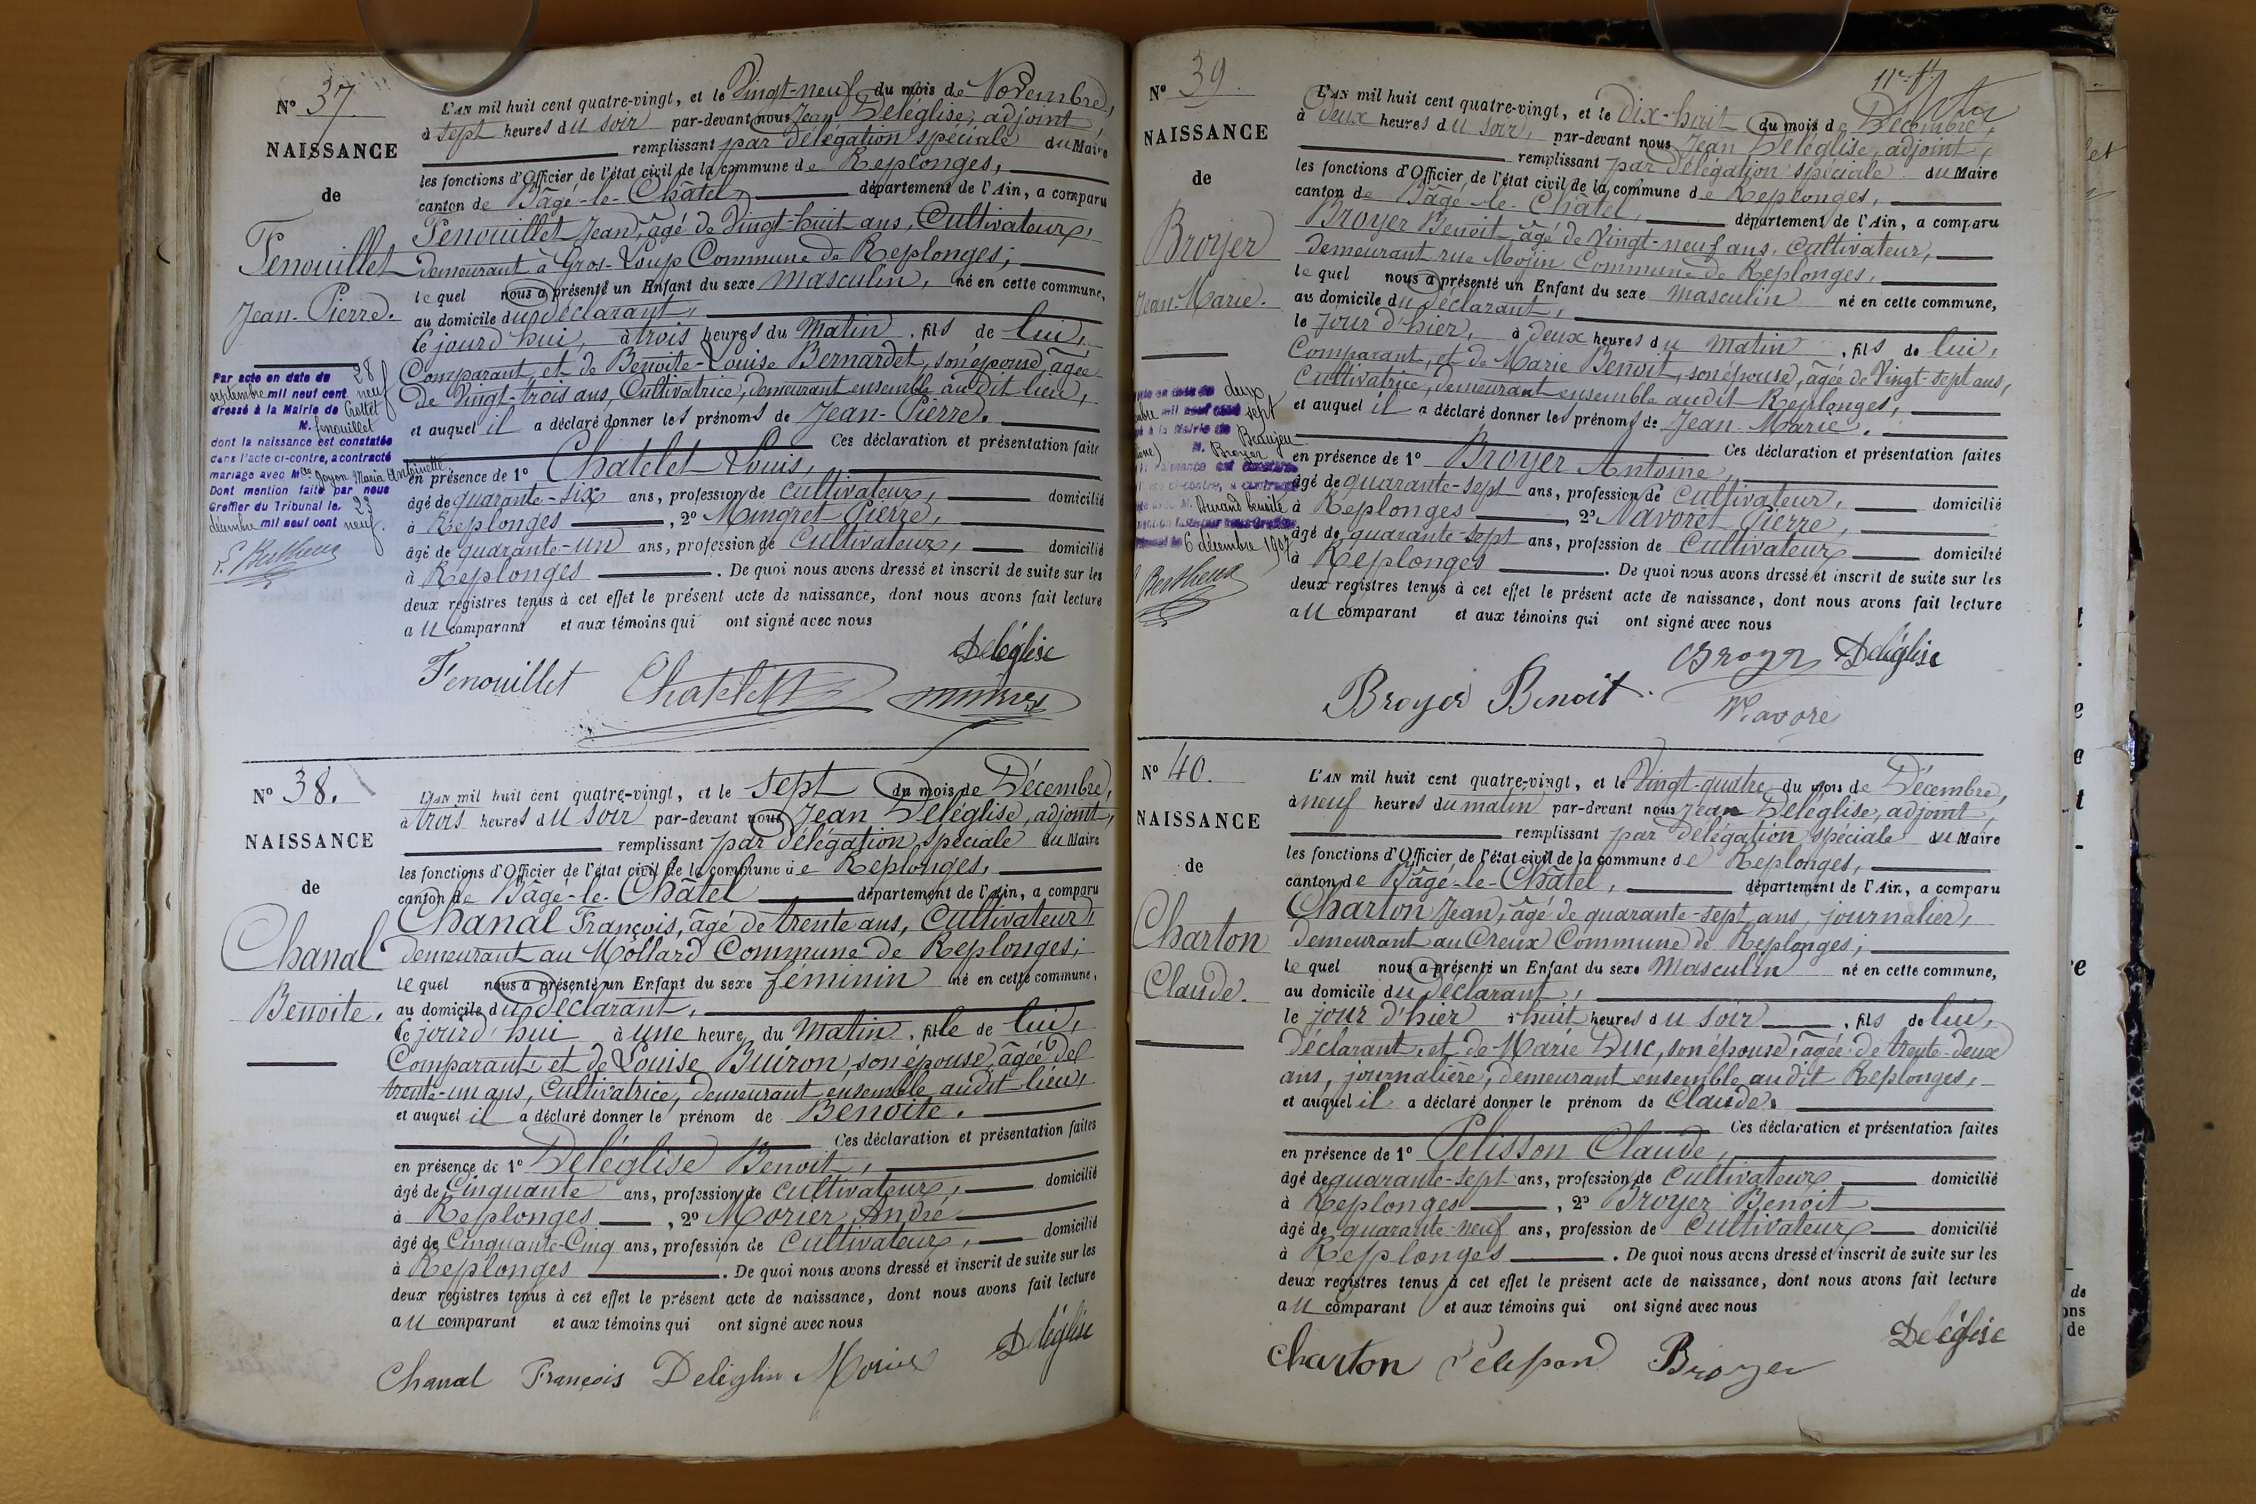 N° 37.
NAISSANCE
de
Fenouillet
Jean-Pierre.
Par acte en date du 28
septembre mil neuf cent neuf
dressé à la Mairie de Crottet
M. Fenouillet
dont la naissance est constatée
dans l'acte ci-contre, a contracté
mariage avec Mlle Goyon Maria Antoinette
Dont mention faite par nous
Greffier du Tribunal le, 23
décembre mil neuf cent neuf.
L'AN mil huit cent quatre-vingt, et le Vingt-neuf du mois de Novembre,
à sept heures du soir par-devant nous Jean Deléglise, adjoint,
remplissant par délégation spéciale du Maire
les fonctions d'Officier de l'état civil de la commune de Replonges,
canton de Bâgé-le-Châtel, département de l'Ain, a comparu
Fenouillet Jean, âgé de Vingt-huit ans, Cultivateur,
demeurant à Gros-Loup Commune de Replonges,
lequel nous a présenté un Enfant du sexe masculin, né en cette commune,
au domicile du déclarant,
le jourd'hui, à trois heures du matin, fils de lui,
Comparant, et de Benoite-Louise Bernardet, son épouse, âgée
de Vingt-trois ans, Cultivatrice, demeurant ensemble audit lieu,
et auquel il a déclaré donner les prénoms de Jean-Pierre.
Ces déclaration et présentation faite
en présence de 1° Chatelet Louis,
âgé de quarante-six ans, profession de cultivateur, domicilié
à Replonges, 2° Mingret Pierre,
âgé de quarante-un ans, profession de cultivateur, domicilié
à Replonges. De quoi nous avons dressé et inscrit de suite sur les
deux registres tenus à cet effet le présent acte de naissance, dont nous avons fait lecture
au comparant et aux témoins qui ont signé avec nous
Deléglise
Fenouillet Chatelet
N° 38.
NAISSANCE
de
Chanal
Benoite.
L'AN mil huit cent quatre-vingt, et le sept du mois de Décembre,
à trois heures du soir par-devant nous Jean Deléglise, adjoint,
remplissant par délégation spéciale du Maire
les fonctions d'Officier de l'état civil de la commune de Replonges,
canton de Bâgé-le-Châtel département de l'Ain, a comparu
Chanal François, âgé de trente ans, Cultivateur,
demeurant au Mollard Commune de Replonges;
lequel nous a présenté un Enfant du sexe féminin né en cette commune,
au domicile du déclarant,
le jourd'hui à une heure du matin, fille de lui,
Comparant et de Louise Buiron, son épouse, âgée de
trente-un ans, Cultivatrice, demeurant ensemble audit lieu,
et auquel il a déclaré donner le prénom de Benoite.
Ces déclaration et présentation faites
en présence de 1° Deléglise Benoit,
âgé de Cinquante ans, profession de cultivateur, domicilié
à Replonges, 2° Morier André
âgé de Cinquante-Cinq ans, profession de Cultivateur, domicilié
à Replonges. De quoi nous avons dressé et inscrit de suite sur les
deux registres tenus à cet effet le présent acte de naissance, dont nous avons fait lecture
au comparant et aux témoins qui ont signé avec nous
Deléglise
Chanal François Deléglise Morier
N° 39.
NAISSANCE
de
Broyer
Jean-Marie.
deux
sept
Beaujeu
M. Broyer
Durand Benoite
6 décembre 1907
L'AN mil huit cent quatre-vingt, et le dix-huit du mois de Décembre,
à Deux heures du soir, par-devant nous Jean Deléglise, adjoint,
remplissant par délégation spéciale du Maire
les fonctions d'Officier de l'état civil de la commune de Replonges,
canton de Bâgé-le-Châtel, département de l'Ain, a comparu
Broyer Benoit âgé de Vingt-neuf ans, Cultivateur,
demeurant rue Mojin Commune de Replonges,
lequel nous a présenté un Enfant du sexe masculin né en cette commune,
au domicile du déclarant,
le jour d'hier, à deux heures du matin, fils de lui,
Comparant, et de Marie Benoit, son épouse, âgée de Vingt-sept ans,
Cultivatrice, demeurant ensemble audit Replonges,
et auquel il a déclaré donner les prénoms de Jean-Marie.
Ces déclaration et présentation faites
en présence de 1° Broyer Antoine,
âgé de quarante-sept ans, profession de Cultivateur, domicilié
à Replonges, 2° Navoret Pierre,
âgé de quarante-sept ans, profession de Cultivateur domicilié
à Replonges. De quoi nous avons dressé et inscrit de suite sur les
deux registres tenus à cet effet le présent acte de naissance, dont nous avons fait lecture
au comparant et aux témoins qui ont signé avec nous
Broyer Deléglise
Broyer Benoit
N° 40.
NAISSANCE
de
Charton
Claude.
L'AN mil huit cent quatre-vingt, et le Vingt-quatre du mois de Décembre,
à neuf heures du matin par-devant nous Jean Deléglise, adjoint,
remplissant par délégation spéciale du Maire
les fonctions d'Officier de l'état civil de la commune de Replonges,
canton de Bâgé-le-Châtel, département de l'Ain, a comparu
Charton Jean, âgé de quarante-sept ans, journalier,
demeurant au Creux Commune de Replonges,
lequel nous a présenté un Enfant du sexe Masculin né en cette commune,
au domicile du déclarant,
le jour d'hier à huit heures du soir, fils de lui,
déclarant, et de Marie Duc, son épouse, âgée de trente-deux
ans, journalière, demeurant ensemble audit Replonges,
et auquel il a déclaré donner le prénom de Claude.
Ces déclaration et présentation faites
en présence de 1° Pelisson Claude,
âgé de quarante-sept ans, profession de cultivateur domicilié
à Replonges, 2° Broyer Benoit
âgé de quarante-neuf ans, profession de cultivateur domicilié
à Replonges. De quoi nous avons dressé et inscrit de suite sur les
deux registres tenus à cet effet le présent acte de naissance, dont nous avons fait lecture
au comparant et aux témoins qui ont signé avec nous
Deléglise
Charton Pélisson Broyer